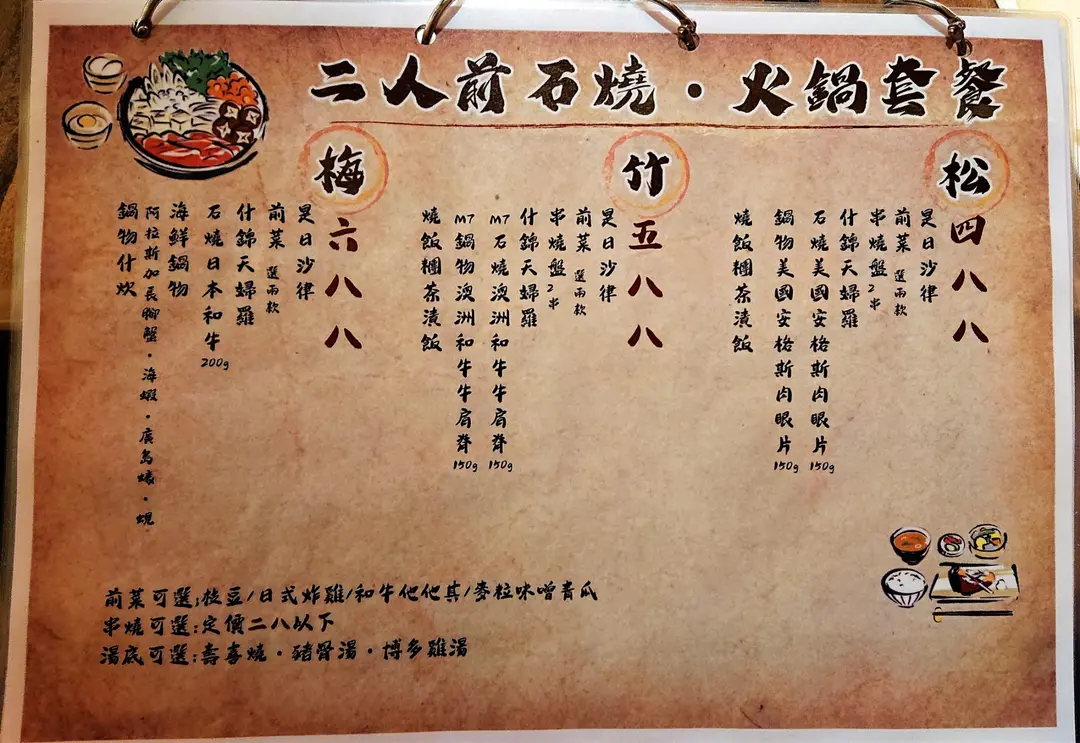 二人前石燒・火鍋套餐
松
四八八
是日沙律
前菜 選兩款
串燒盤2串
什錦天婦羅
石燒美國安格斯肉眼片150g
鍋物美國安格斯肉眼片150g
燒飯糰茶漬飯
竹
五八八
是日沙律
前菜 選兩款
串燒盤2串
什錦天婦羅
M7石燒澳洲和牛牛肩脊150g
M7鍋物澳洲和牛牛肩脊150g
燒飯糰茶漬飯
梅
六八八
是日沙律
前菜 選兩款
什錦天婦羅
石燒日本和牛200g
海鮮鍋物
阿拉斯加長腳蟹・海蝦・廣島蠔・蜆
鍋物什炊
前菜可選:枝豆/日式炸雞/和牛他他其/麥粒味噌青瓜
串燒可選:定價二八以下
湯底可選:壽喜燒・豬骨湯・博多雞湯